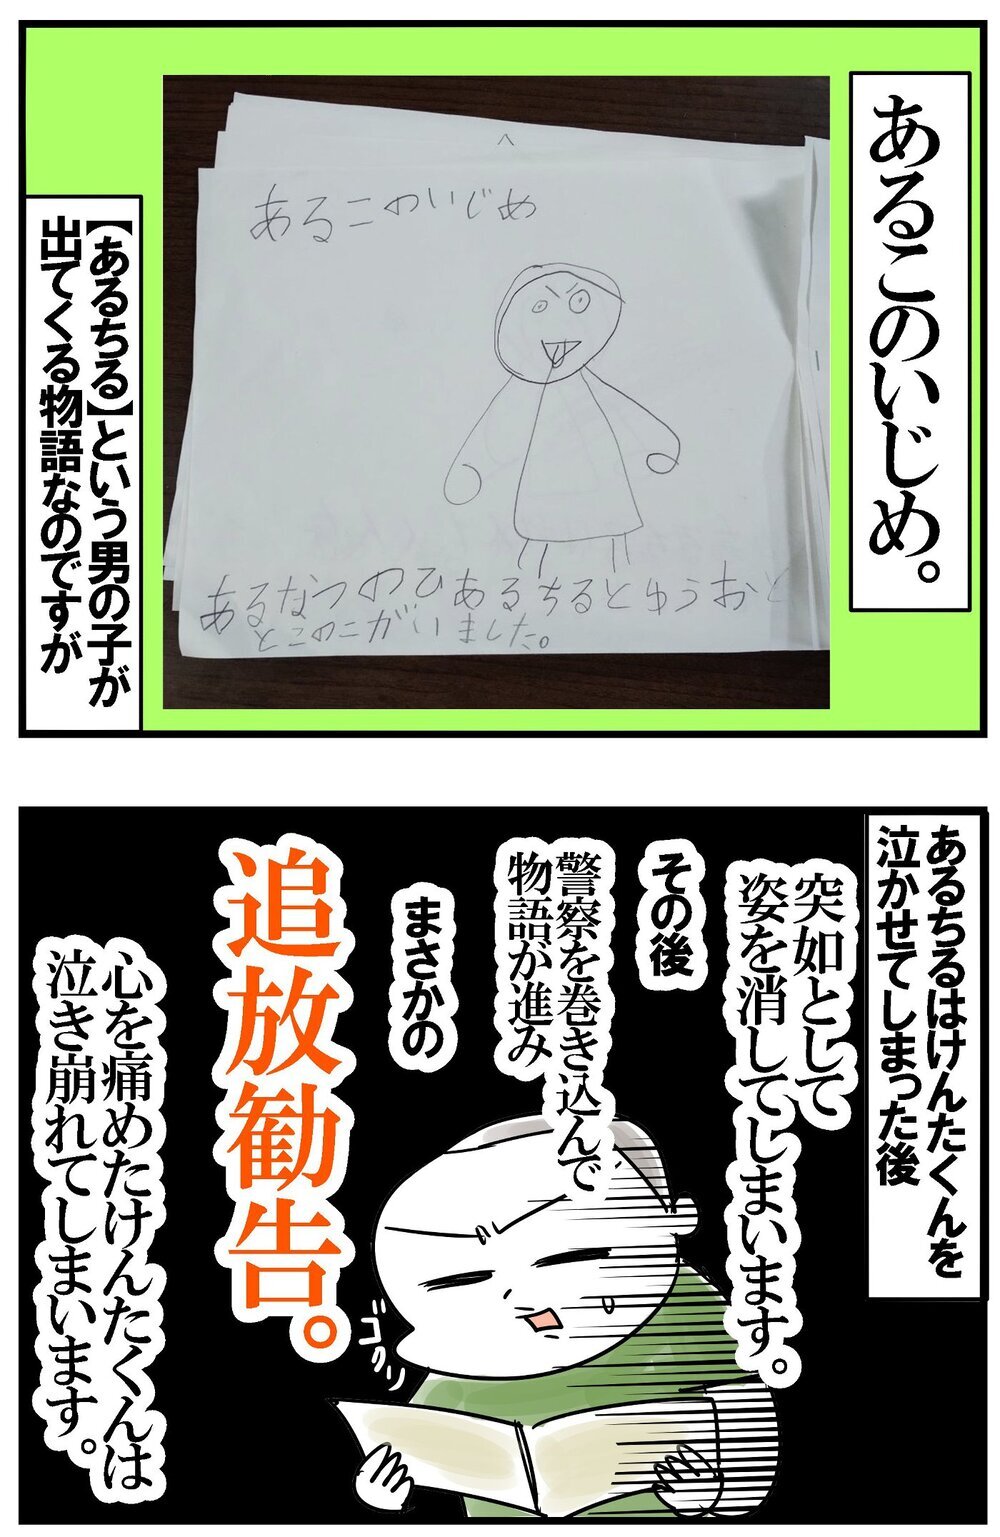 あるこのいじめ。
あるこのいじめ
あるなつのひあるちるとゆうおと
とこのこがいました。
【あるちる】という男の子が
出てくる物語なのですが
あるちるはけんたくんを
泣かせてしまった後
突如として
姿を消してしまいます。
その後
警察を巻き込んで
物語が進み
まさかの
追放勧告。
ゴクリ
心を痛めたけんたくんは
泣き崩れてしまいます。